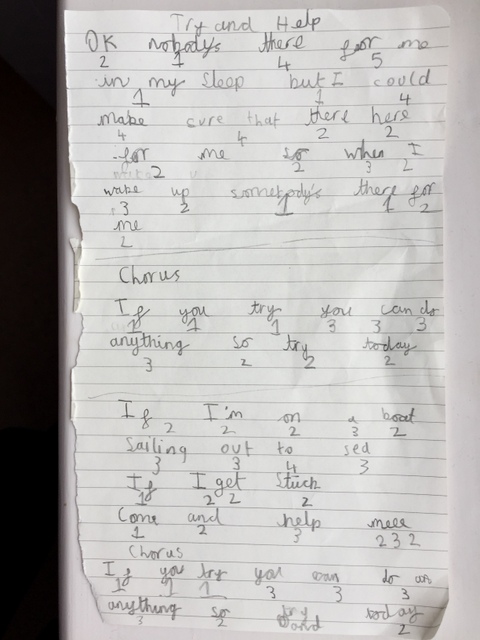 Try and Help
OK nobodys there for me
2 1 4 5
in my Sleep but I could
1 1 4
make cure that there here
4 4 2 2
for me so when I
2 2 3 2
wake up somebody's there for
3 2 1 1 2
me
2
Chorus
If you try you can do
1 1 1 3 3 3
anything so try today
3 2 2 2
If I'm on a boat
2 2 2 3 2
Sailing out to sed
3 3 4 3
If I get Stuck
1 2 2 2
Come and help meee
1 2 3 2 3 2
Chorus
If you try you can do
1 1 1 3 3 3
anything so try today
3 2 and 2